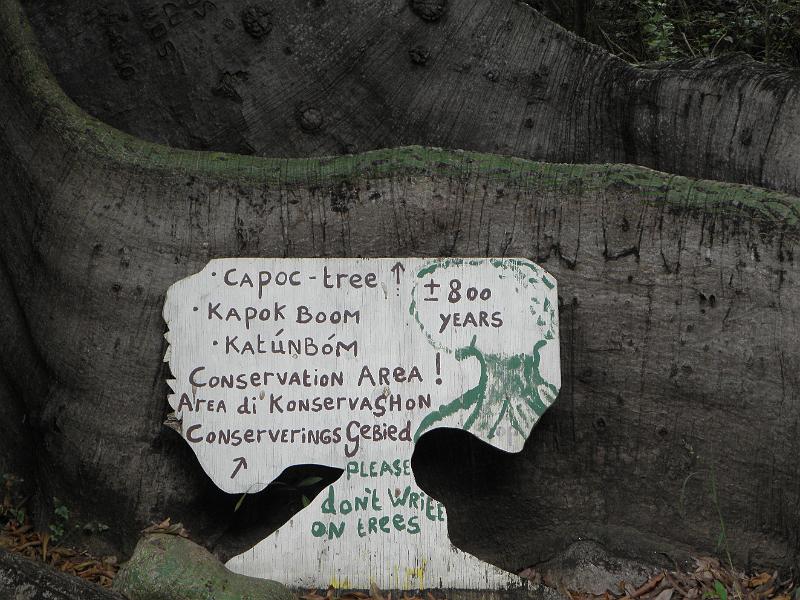 · CAPOC-tree ↑
· KAPOK BOOM
· KATÚNBÓM
± 800
YEARS
CONSERVATION AREA!
AREA di KONSERVASHON
CONSERVERINGS GEBIED
↗
PLEASE
don't WRITE
ON tREES